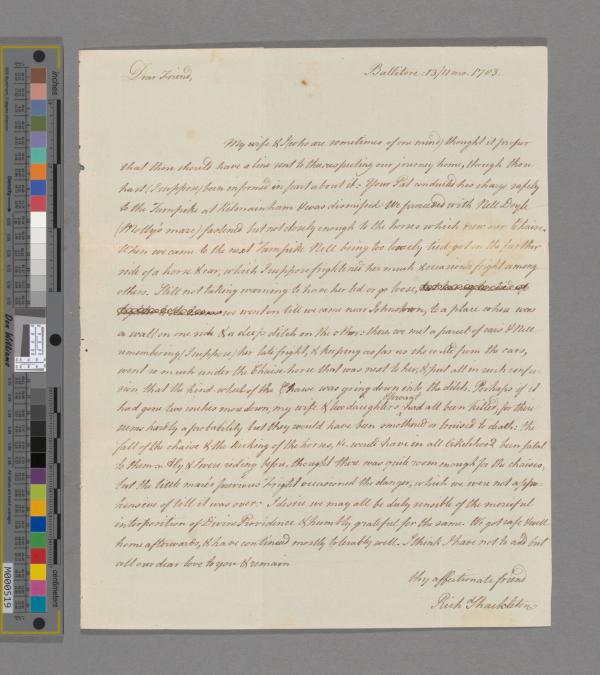 Dear Friend,
Ballitore: 13/11 mo. 1783.
My wife & I (who are sometimes of one mind) thought it proper
that thou should have a line sent to thee respecting our journey home, though thou
hast (I suppose) been informed in part about it: Your Pat conducted his charge safely
to the Turnpike at Kilmainham & was dismissed. We proceeded with Nell Doyle
(Molly's mare) fastened but not closely enough to the horses which drew our Chaise.
When we came to the next Turnpike Nell being too loosely tied got on the further
side of a horse & car, which I suppose frightened her much & occasioned fright among
others. Still not taking warning to have her led or go loose,
we went on till we came near Johnstown, to a place where was
a wall on one side & a deep ditch on the other: there we met a parcel of cars & Nell
remembering (I suppose) her late fright, & keeping as far as she could from the cars,
went so much under the Chaise horse that was next to her, & put all in such confu-
sion that the hind-wheel of the Chaise was going down into the ditch. Perhaps if it
had gone two inches more down, my wife & two daughters
servant
had all been killed, for there
seems hardly a probability but they would have been smothered or bruised to death: the
fall of the chaise & the kicking of the horses, &c would have in all likelihood been fatal
to them & I were riding before, thought there was quite room enough for the chaises,
but the little mare's previous fright occasioned the danger, which we were not appre-
hensive of till it was over: I desire we may all be duly sensible of the merciful
interposition of Divine Providence & humbly grateful for the same. We got safe & well
home afterwards, & have continued mostly tolerably well. I think I have not to add but
all our dear love to you & remain
thy affectionate friend
Rich Shackleton
inches
centimetres
Don Williams
M000519